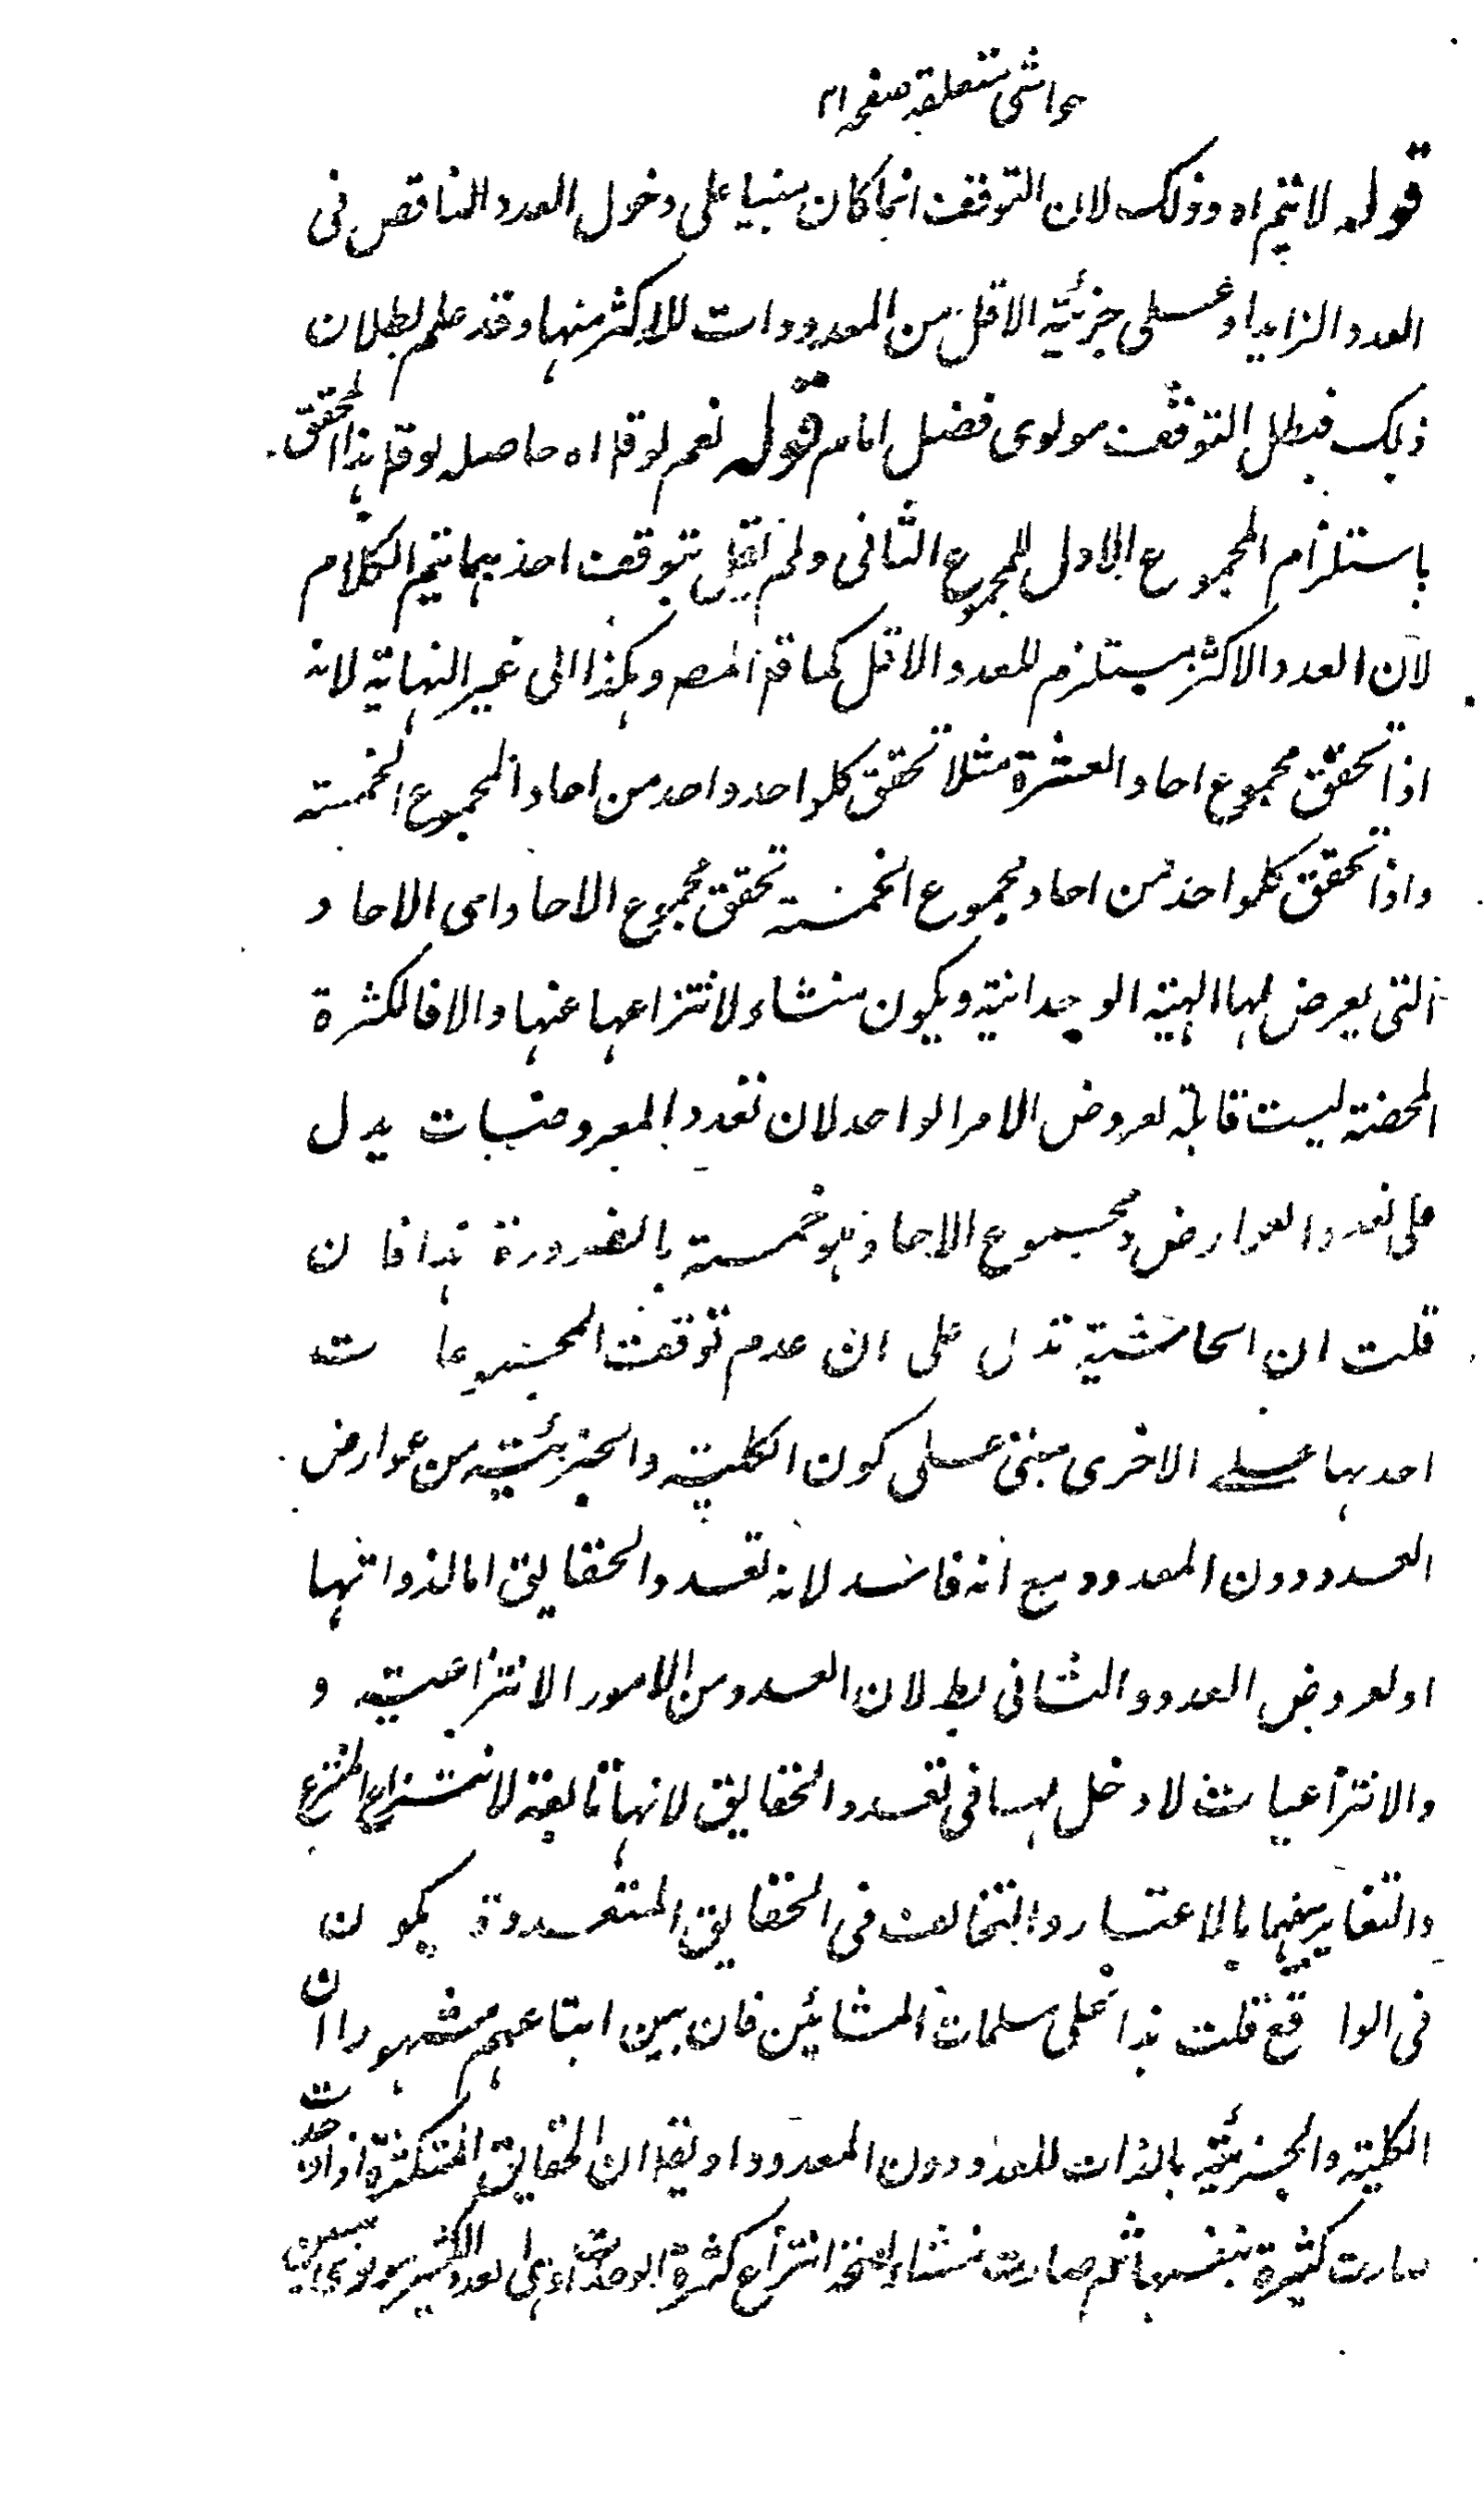 حواشی متعلقہ صفحہ ام
قوله لا يتم اه وذلك لان التوقف انما كان مبنيا على دخول العدد الناقص فى
العدد الزايد او على جزئية الاقل من المعدودات للاكثر منها وقد علم بطلان
ذلك فبطل التوقف مولوى فضل امام قوله نعم لو قا اه حاصله لو قا هذا المحقق
باستلزام المجموع الاول للمجموع الثانى ولم يقل بتوقف احدهما يتم الكلام
لان العدد الاكثر يستلزم للعدد الاقل كما قا المصـ وهكذا الى غير النهاية لانه
اذا تحقق مجموع احاد العشرة مثلا تحقق كلواحد واحد من احاد المجموع الخمسة
واذا تحقق كلواحد من احاد مجموع الخمسة تحقق مجموع الاحاد اى الاحاد
التى يعرض لها الهيئة الوحدانية ويكون منشاء لانتزاعها عنها والا فالكثرة
المحضة ليست قابلة لعروض الامر الواحد لان تعدد المعروضات يدل
على تعدد العوارض ومجموع الاحاد هو خمسة بالضرورة هذا فان
قلت ان الحاشية تدل على ان عدم توقف المجموعات
احدها على الاخرى مبنى على كون الكلية والجزئية من عوارض
العدد دون المعدود مع انه فاسد لانه تعدد الحقايق اما لذواتها
او لعروض العدد والثانى بط لان العدد من الامور الانتزاعية و
والانتزاعيات لا دخل لها فى تعدد الحقايق لانها تابعة لانتزاع المنتزع
والتغاير بينهما بالاعتبار والتخالف فى الحقايق المتعددة يكون
فى الواقع قلت هذا على مسلمات المشائين فان بين اتباعهم مشهورا ان
الكلية والجزئية بالذات للعدد دون المعدود او يقا ان الحقايق المتكثرة اذا
صارت كثيرة بنفسها ثم صارت منشاء انتزاع كثرة الوحدات اى العدد الكثير مولوى